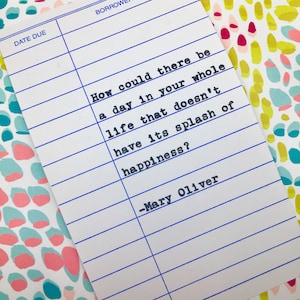 DATE DUE
BORROWER
How could there be
a day in your whole
life that doesn't
have its splash of
happiness?
-Mary Oliver